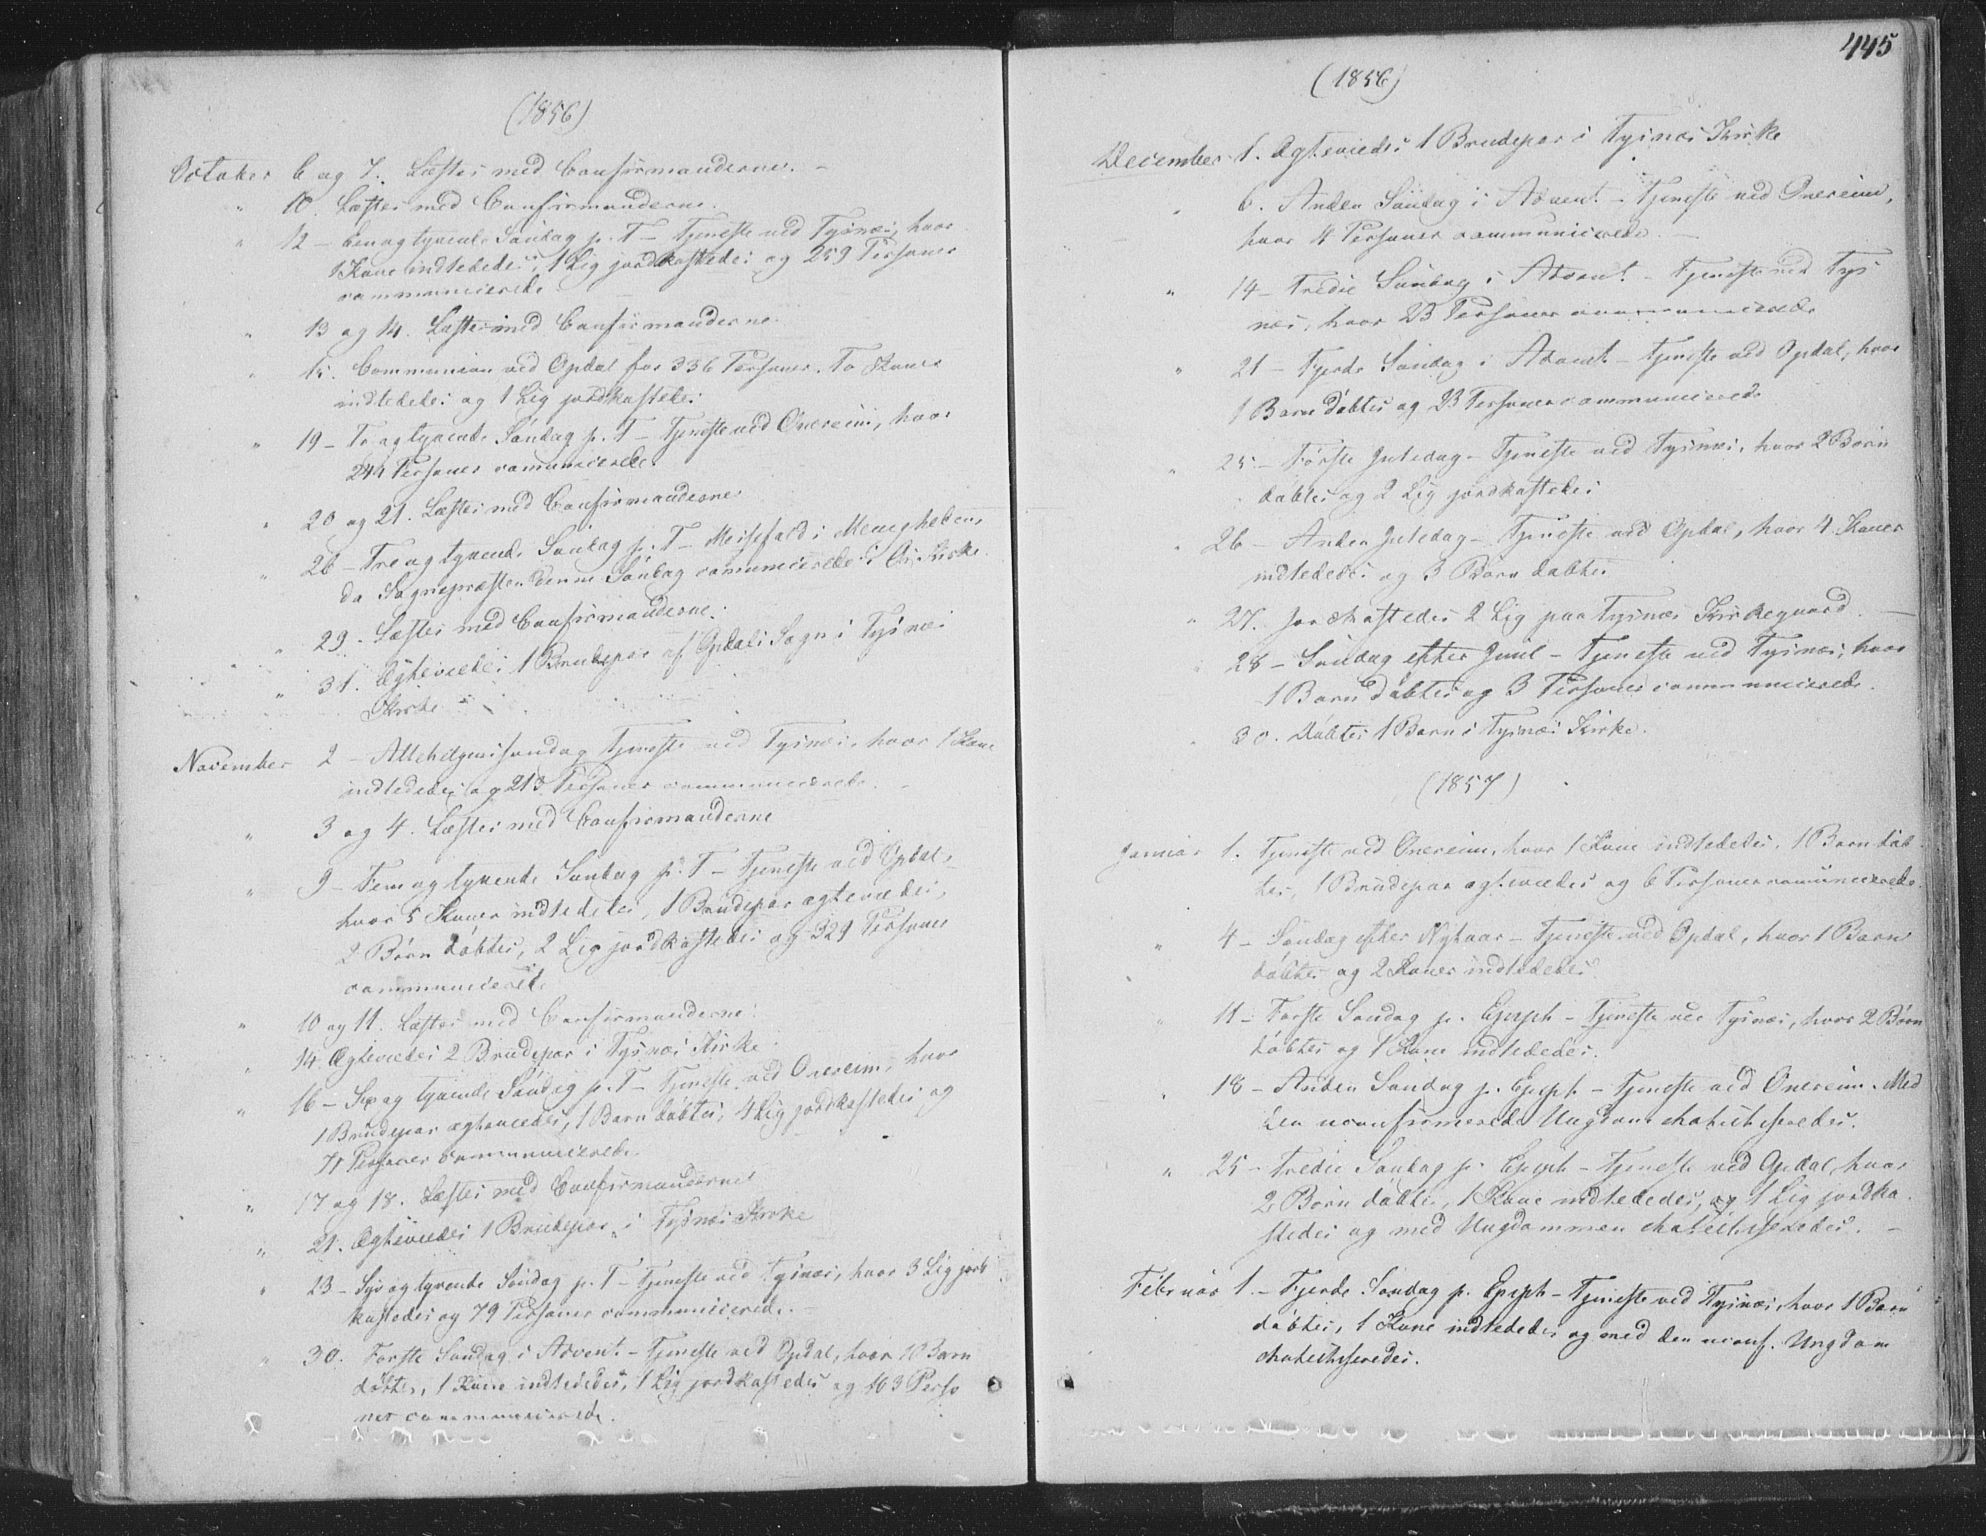 (1856)
October 6 og 7. Læstes med Confirmanderne. –
" 10. Læstes med Confirmanderne.
" 12 – Een og tyvende Søndag p. T – Tjeneste ved Tysnæs, hvor
1 Kone indlededes, 1 Lig jordkastedes og 259 Personer
communicerede
" 13 og 14. Læstes med Confirmanderne.
" 15. Communion ved Opdal for 336 Personer. To Koner
indlededes og 1 Lig jordkastedes
" 19 – To og tyvende Søndag p. T – Tjeneste ved Onereim, hvor
244 Personer comunicerede.
" 20 og 21. Læstes med Confirmanderne
" 26 – Tre og tyvende Søndag p. T – Messefald i Menigheden,
da Sognepræsten denne Søndag comunicerede i Kirke.
" 29. Læstes med Confirmanderne.
" 31. Ægteviedes 1 Brudepar af Opdals Sogn i Tysnæs
Kirke
November 2 – Allehelgenssøndag Tjeneste ved Tysnæs, hvor 1 Kone
indlededes og 213 Personer communicerede. –
" 3 og 4. Læstes med Confirmanderne
" 9 – Fem og tyvende Søndag p. T – Tjeneste ved Opdal,
hvor 5 Koner indlededes, 1 Brudepar ægteviedes,
2 Børn døbtes, 2 Lig jordkastedes og 329 Personer
communicerede
" 10 og 11. Læstes med Confirmanderne.
" 14. Ægteviedes 2 Brudepar i Tysnæs Kirke.
" 16 – Sex og tyvende Søndag p. T – Tjeneste ved Onereim, hvor
1 Brudepar ægteviedes, 1 Barn døbtes, 4 Lig jordkastedes og
71 Personer communicerede.
" 17 og 18. Læstes med Confirmanderne
" 21. Ægteviedes 1 Brudepar i Tysnæs Kirke
" 23 – Syv og tyvende Søndag p. T – Tjeneste ved Tysnæs, hvor 3 Lig jord
kastedes og 79 Personer communicerede.
" 30. Første Søndag i Advent – Tjeneste ved Opdal, hvor 1 Barn
døbtes, 1 Kone indlededes, 1 Lig jordkastedes og 103 Perso
ner communicerede.
445
(1856)
December 1. Ægteviedes 1 Brudepar i Tysnæs Kirke
" 6. Anden Søndag i Advent – Tjeneste ved Onereim,
hvor 4 Personer communicerede. –
" 14 – Tredie Søndag i Advent – Tjeneste ved Tys
næs, hvor 23 Personer communicerede
" 21 – Fjerde Søndag i Advent – Tjeneste ved Opdal, hvor
1 Barn døbtes og 23 Personer communicerede
" 25 – Første Juledag – Tjeneste ved Tysnæs, hvor 2 Børn
døbtes og 2 Lig jordkastedes
" 26 – Anden Juledag – Tjeneste ved Opdal, hvor 4 Koner
indlededes og 3 Børn døbtes
" 27. Jordkastedes 2 Lig paa Tysnæs Kirkegaard. –
" 28 – Søndag efter Juul – Tjeneste ved Tysnæs, hvor
1 Barn døbtes og 3 Personer communicerede.
" 30. Døbtes 1 Barn i Tysnæs Kirke.
(1857)
Januar 1. Tjeneste ved Onereim, hvor 1 Kone indlededes, 1 Barn døb
tes, 1 Brudepar ægteviedes og 6 Personer comunicerede.
" 4 – Søndag efter Nytaar – Tjeneste ved Opdal, hvor 1 Barn
døbtes og 2 Koner indlededes.
" 11 – Første Søndag p. Epiph – Tjeneste ved Tysnæs, hvor 2 Børn
døbtes og 1 Kone indlededes.
" 18 – Anden Søndag p. Epiph – Tjeneste ved Onereim. Med
den uconfirmerede Ungdom chatechiseredes.
" 25 – Tredie Søndag p. Epiph – Tjeneste ved Opdal, hvor
2 Børn døbtes, 1 Kone indlededes, og 1 Lig jordka
stedes og med Ungdommen chatechiseredes. –
Februar 1. – Fjerde Søndag p. Epiph – Tjeneste ved Tysnæs, hvor 1 Barn
døbtes, 1 Kone indlededes og med den uconf. Ungdom
chatechiseredes.